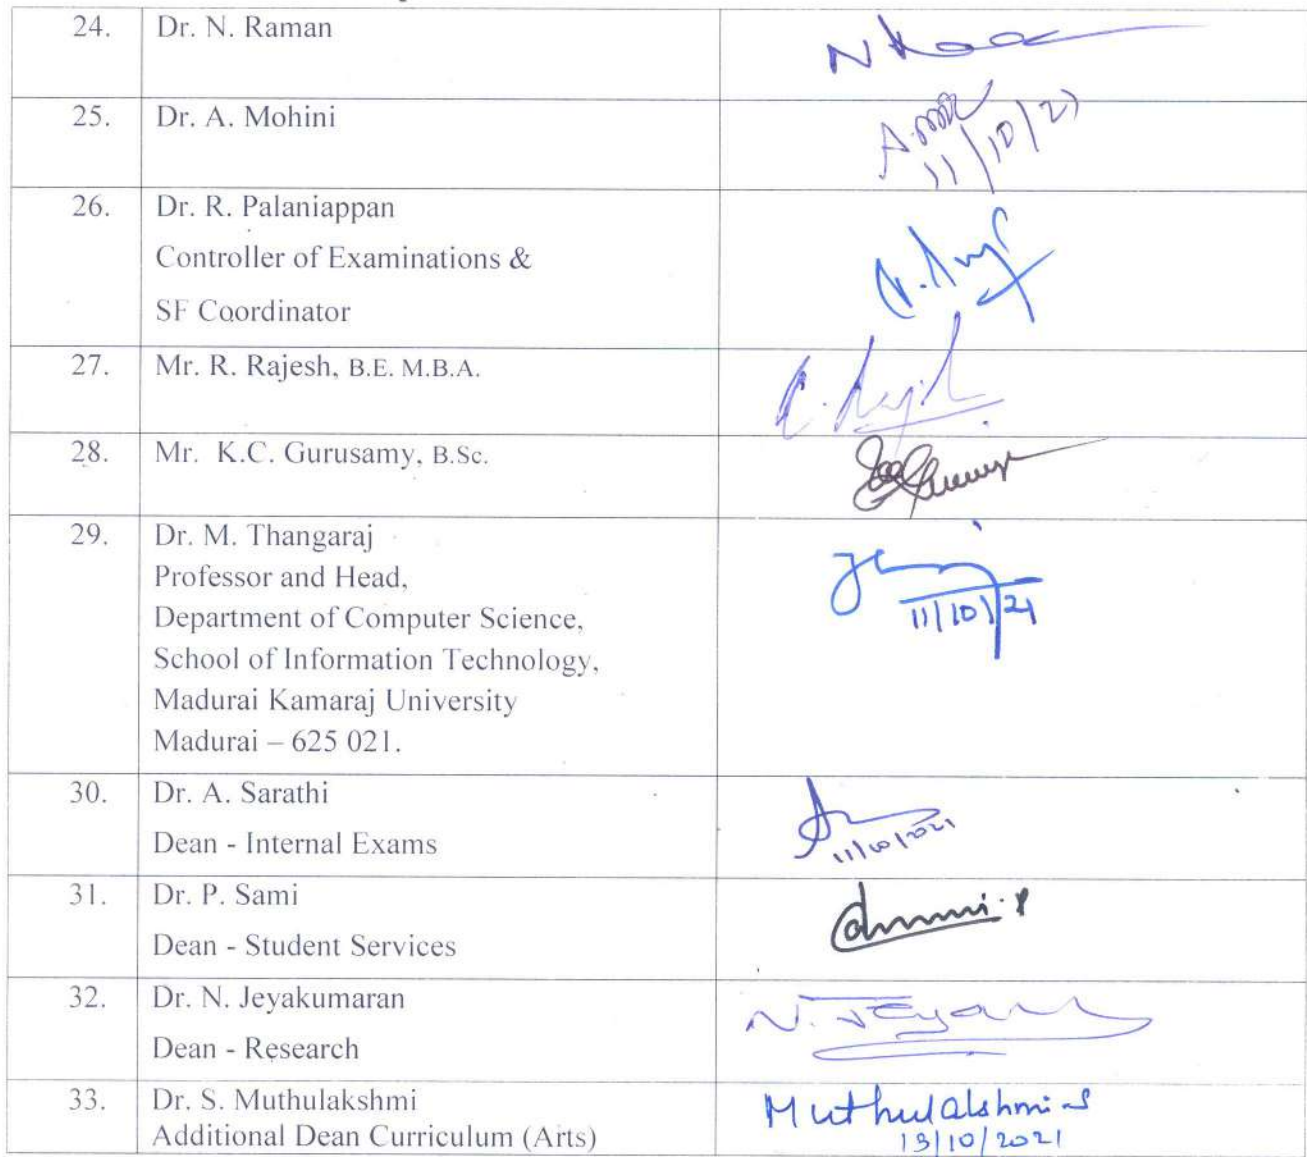 24. Dr. N. Raman
25. Dr. A. Mohini
11/10/21
26. Dr. R. Palaniappan
Controller of Examinations &
SF Coordinator
27. Mr. R. Rajesh, B.E. M.B.A.
28. Mr. K.C. Gurusamy, B.Sc.
29. Dr. M. Thangaraj
Professor and Head,
Department of Computer Science,
School of Information Technology,
Madurai Kamaraj University
Madurai – 625 021.
11/10/21
30. Dr. A. Sarathi
Dean - Internal Exams
11/10/2021
31. Dr. P. Sami
Dean - Student Services
32. Dr. N. Jeyakumaran
Dean - Research
33. Dr. S. Muthulakshmi
Additional Dean Curriculum (Arts)
Muthulakshmi S
13/10/2021